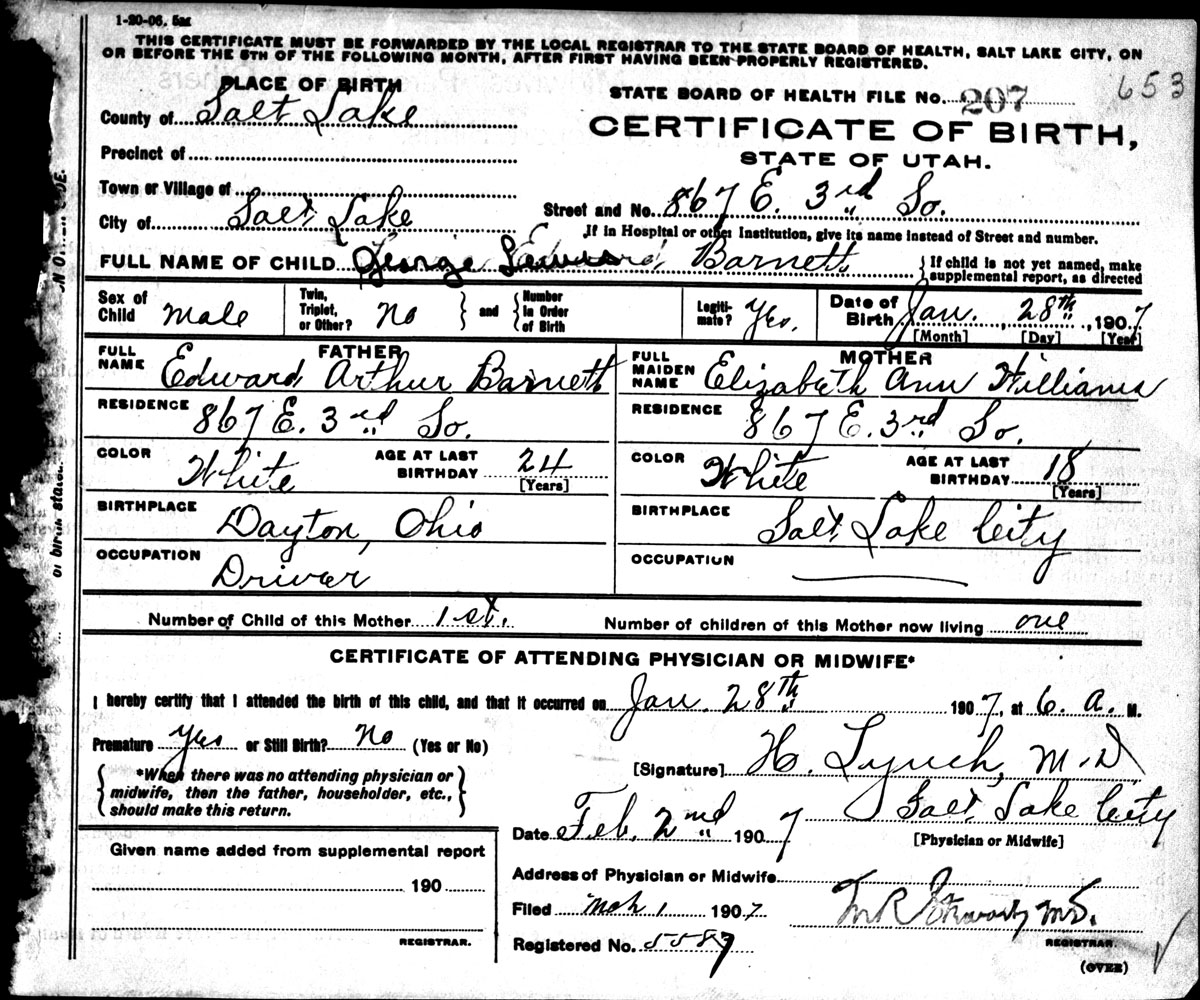 1-20-06. 5m
THIS CERTIFICATE MUST BE FORWARDED BY THE LOCAL REGISTRAR TO THE STATE BOARD OF HEALTH, SALT LAKE CITY, ON
OR BEFORE THE 5TH OF THE FOLLOWING MONTH, AFTER FIRST HAVING BEEN PROPERLY REGISTERED.
653
PLACE OF BIRTH
STATE BOARD OF HEALTH FILE No. 207
County of Salt Lake
CERTIFICATE OF BIRTH,
Precinct of
STATE OF UTAH.
Town or Village of
City of Salt Lake
Street and No. 867 E. 3rd So.
If in Hospital or other Institution, give its name instead of Street and number.
FULL NAME OF CHILD George Edward Barnett
If child is not yet named, make
supplemental report, as directed
Sex of Child male
Twin, Triplet, or Other? No
and
Number in Order of Birth
Legitimate? Yes.
Date of Birth Jan. 28th, 1907
[Month] [Day] [Year]
FATHER
FULL NAME Edward Arthur Barnett
RESIDENCE 867 E. 3rd So.
COLOR White
AGE AT LAST BIRTHDAY 24
[Years]
BIRTHPLACE Dayton, Ohio
OCCUPATION Driver
MOTHER
FULL MAIDEN NAME Elizabeth Ann Williams
RESIDENCE 867 E. 3rd So.
COLOR White
AGE AT LAST BIRTHDAY 18
[Years]
BIRTHPLACE Salt Lake City
OCCUPATION
Number of Child of this Mother 1st.
Number of children of this Mother now living one
CERTIFICATE OF ATTENDING PHYSICIAN OR MIDWIFE*
I hereby certify that I attended the birth of this child, and that it occurred on Jan. 28th 1907, at 6. A. M.
Premature yes or Still Birth? No (Yes or No)
*When there was no attending physician or
midwife, then the father, householder, etc.,
should make this return.
[Signature] H. Lynch, M.D
Salt Lake City
Date Feb. 2nd 1907
[Physician or Midwife]
Given name added from supplemental report
190
REGISTRAR.
Address of Physician or Midwife
Filed Mch 1 1907.
Registered No. 5587
M.D.
REGISTRAR
(OVER)